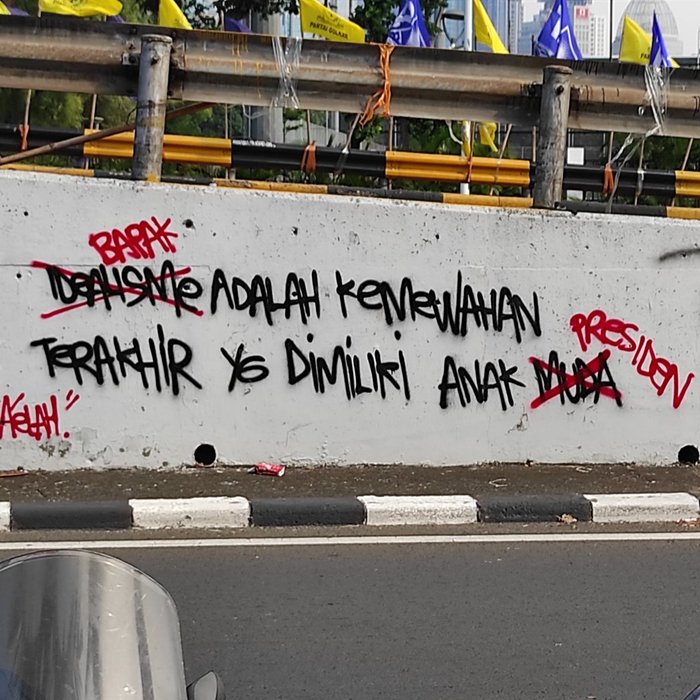 PARTAI GOLKAR
BAPAK
IDEALISME ADALAH KEMEWAHAN
PRESIDEN
TERAKHIR YG DIMILIKI ANAK MUDA
A'ELAH."